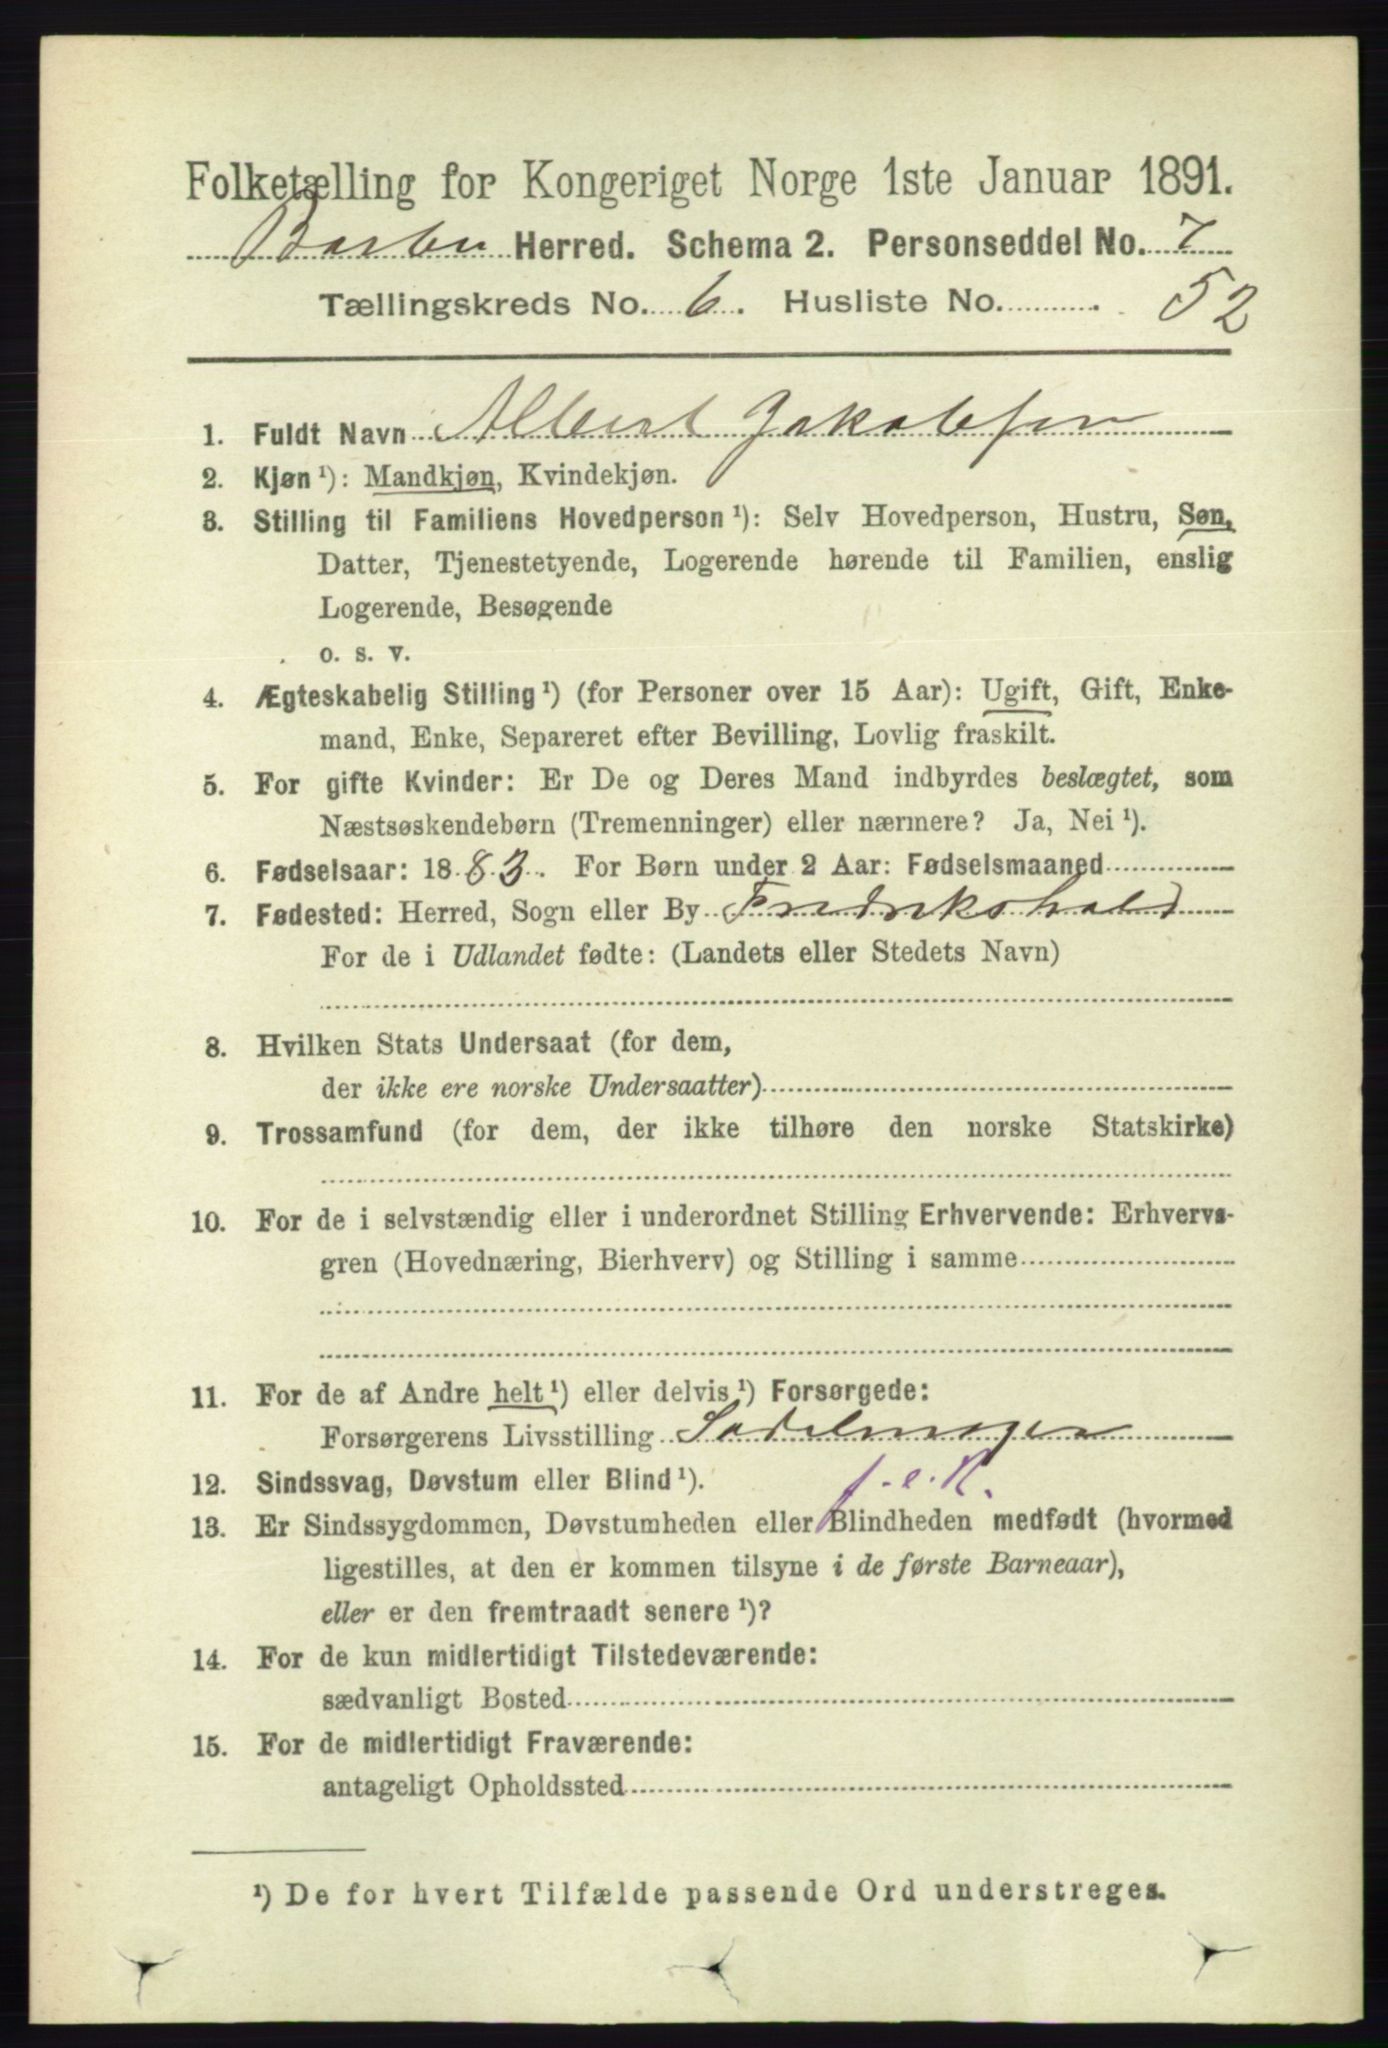 Folketælling for Kongeriget Norge 1ste Januar 1891.
Barbu Herred. Schema 2. Personseddel No. 7
Tællingskreds No. 6. Husliste No. 52
1. Fuldt Navn Albert Jakobsen
2. Kjøn ¹): Mandkjøn, Kvindekjøn.
3. Stilling til Familiens Hovedperson ¹): Selv Hovedperson, Hustru, Søn,
Datter, Tjenestetyende, Logerende hørende til Familien, enslig
Logerende, Besøgende
o. s. v.
4. Ægteskabelig Stilling ¹) (for Personer over 15 Aar): Ugift, Gift, Enke-
mand, Enke, Separeret efter Bevilling, Lovlig fraskilt.
5. For gifte Kvinder: Er De og Deres Mand indbyrdes beslægtet, som
Næstsøskendebørn (Tremenninger) eller nærmere? Ja, Nei ¹).
6. Fødselsaar: 1883. For Børn under 2 Aar: Fødselsmaaned
7. Fødested: Herred, Sogn eller By Fredrikshald
For de i Udlandet fødte: (Landets eller Stedets Navn)
8. Hvilken Stats Undersaat (for dem,
der ikke ere norske Undersaatter)
9. Trossamfund (for dem, der ikke tilhøre den norske Statskirke)
10. For de i selvstændig eller i underordnet Stilling Erhvervende: Erhvervs-
gren (Hovednæring, Bierhverv) og Stilling i samme
11. For de af Andre helt ¹) eller delvis ¹) Forsørgede:
Forsørgerens Livsstilling Sadelmager
f. e. R.
12. Sindssvag, Døvstum eller Blind ¹).
13. Er Sindssygdommen, Døvstumheden eller Blindheden medfødt (hvormed
ligestilles, at den er kommen tilsyne i de første Barneaar),
eller er den fremtraadt senere ¹)?
14. For de kun midlertidigt Tilstedeværende:
sædvanligt Bosted
15. For de midlertidigt Fraværende:
antageligt Opholdssted
¹) De for hvert Tilfælde passende Ord understreges.